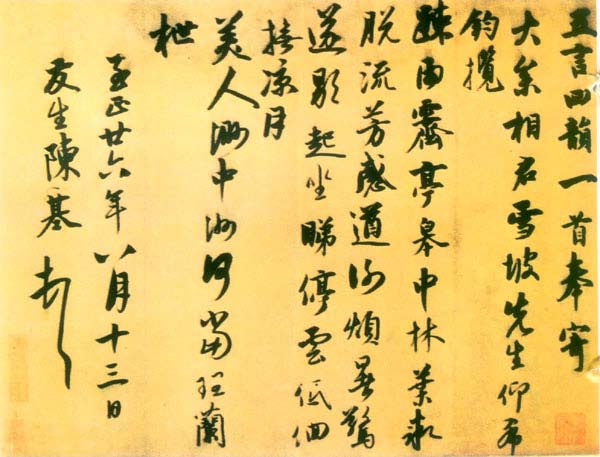 五言四韻一首奉寄
大參相君雪坡先生仰希
鈞攬
踈雨霽亭皋中林葉
脫流芳感遒謝煩暑驚
遂歇起坐睇停雲低佪
撫涼月
美人渺中洲何當理蘭
枻
至正廿六年八月十三日
友生陳基